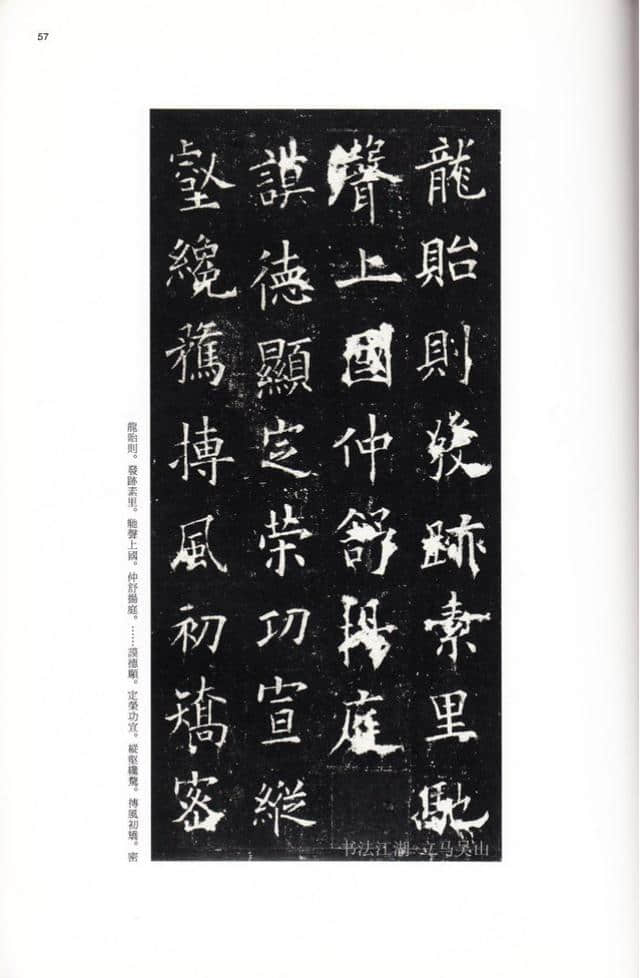 57
龍貽則發跡素里馳
聲上國仲舒揚庭
謨德顯定榮功宣縱
壑纔騖摶風初矯密
龍貽則。發跡素里。馳聲上國。仲舒揚庭。……謨德顯。定榮功宣。縱壑纔騖。摶風初矯。密
书法江湖 立马吴山